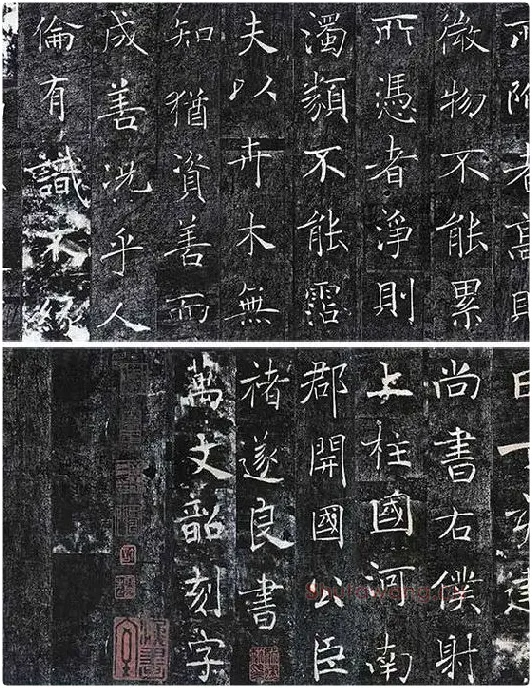 所附者高則
微物不能累
所憑者淨則
濁類不能霑
夫以卉木無
知猶資善而
成善況乎人
倫有識不緣
日丁亥建
尚書右僕射
上柱國河南
郡開國公臣
褚遂良書
萬文韶刻字